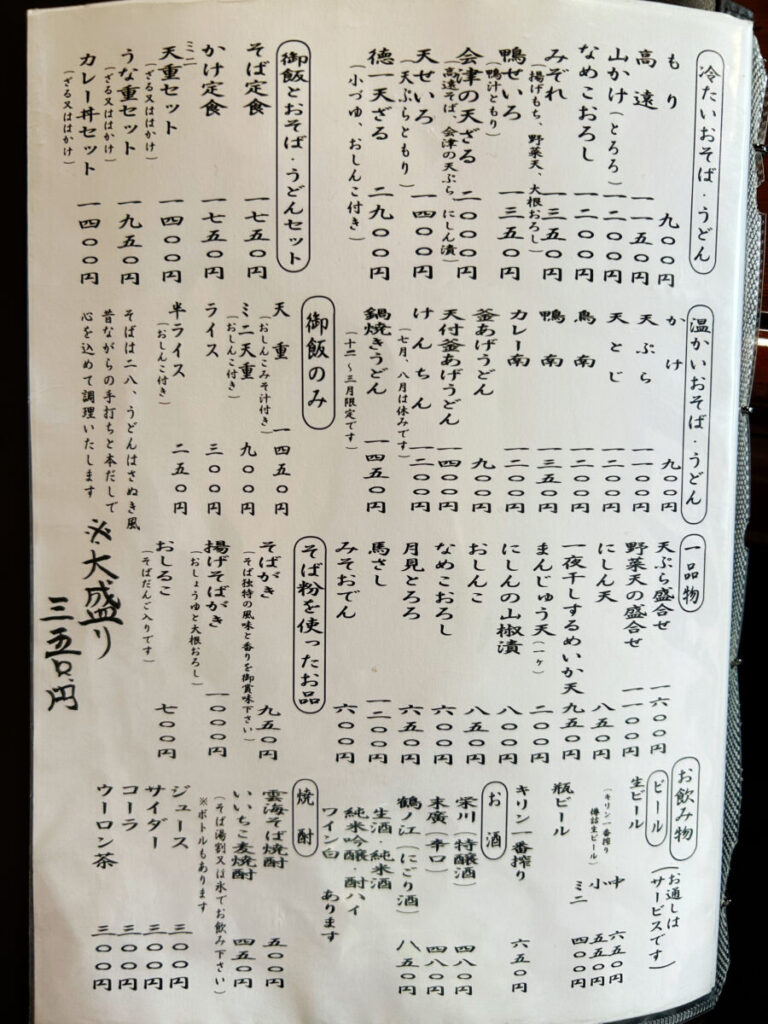 冷たいおそば・うどん
もり 九〇〇円
高遠 一一五〇円
山かけ(とろろ) 一二〇〇円
なめこおろし 一二〇〇円
みぞれ 一三五〇円
(揚げもち、野菜天、大根おろし)
鴨ぜいろ 一三五〇円
(鴨汁ともり)
会津の天ざる 二〇〇〇円
(高遠そば、会津の天ぷら、にしん漬)
天ぜいろ 一四〇〇円
(天ぷらともり)
徳一天ざる 二九〇〇円
(小づゆ、おしんこ付き)
御飯とおそば・うどんセット
そば定食 一七五〇円
かけ定食 一七五〇円
ミニ
天重セット 一四〇〇円
(ざる又はかけ)
うな重セット 一九五〇円
(ざる又はかけ)
カレー丼セット 一四〇〇円
(ざる又はかけ)
温かいおそば・うどん
かけ 九〇〇円
天ぷら 一一〇〇円
天とじ 一二〇〇円
鳥南 一二〇〇円
鴨南 一三五〇円
カレー南 一二〇〇円
釜あげうどん 九〇〇円
天付釜あげうどん 一四〇〇円
けんちん 一二〇〇円
(七月、八月は休みです)
鍋焼きうどん 一四五〇円
(十二~三月限定です)
御飯のみ
天重 一四五〇円
(おしんこみそ汁付き)
ミニ天重 九〇〇円
(おしんこ付き)
ライス 三〇〇円
半ライス 二五〇円
(おしんこ付き)
そばは二八、うどんはさぬき風
昔ながらの手打ちと本だしで
心を込めて調理いたします
一品物
天ぷら盛合せ 一六〇〇円
野菜天の盛合せ 一一〇〇円
にしん天 八五〇円
一夜干しするめいか天 九五〇円
まんじゅう天(一ヶ) 二〇〇円
にしんの山椒漬 八〇〇円
おしんこ 八五〇円
なめこおろし 六〇〇円
月見とろろ 六五〇円
馬さし 一二〇〇円
みそおでん 六〇〇円
そば粉を使ったお品
そばがき 九五〇円
(そば独特の風味と香りを御賞味下さい)
揚げそばがき 一〇〇〇円
(おしょうゆと大根おろし)
おしるこ 七〇〇円
(そばだんご入りです)
※大盛り
三五〇円
お飲み物
(お通しは
サービスです)
ビール
生ビール 中 六五〇円
(キリン一番搾り 小 五五〇円
樽詰生ビール) ミニ 四〇〇円
瓶ビール
キリン一番搾り 六五〇円
お酒
栄川(特醸酒) 四八〇円
末廣(辛口) 四八〇円
鶴ノ江(にごり酒) 八五〇円
生酒・純米酒
純米吟醸・酎ハイ
ワイン白 あります
焼酎
雲海そば焼酎 五〇〇円
いいちこ麦焼酎 四五〇円
(そば湯割又は氷でお飲み下さい)
※ボトルもあります
ジュース 三〇〇円
サイダー 三〇〇円
コーラ 三〇〇円
ウーロン茶 三〇〇円